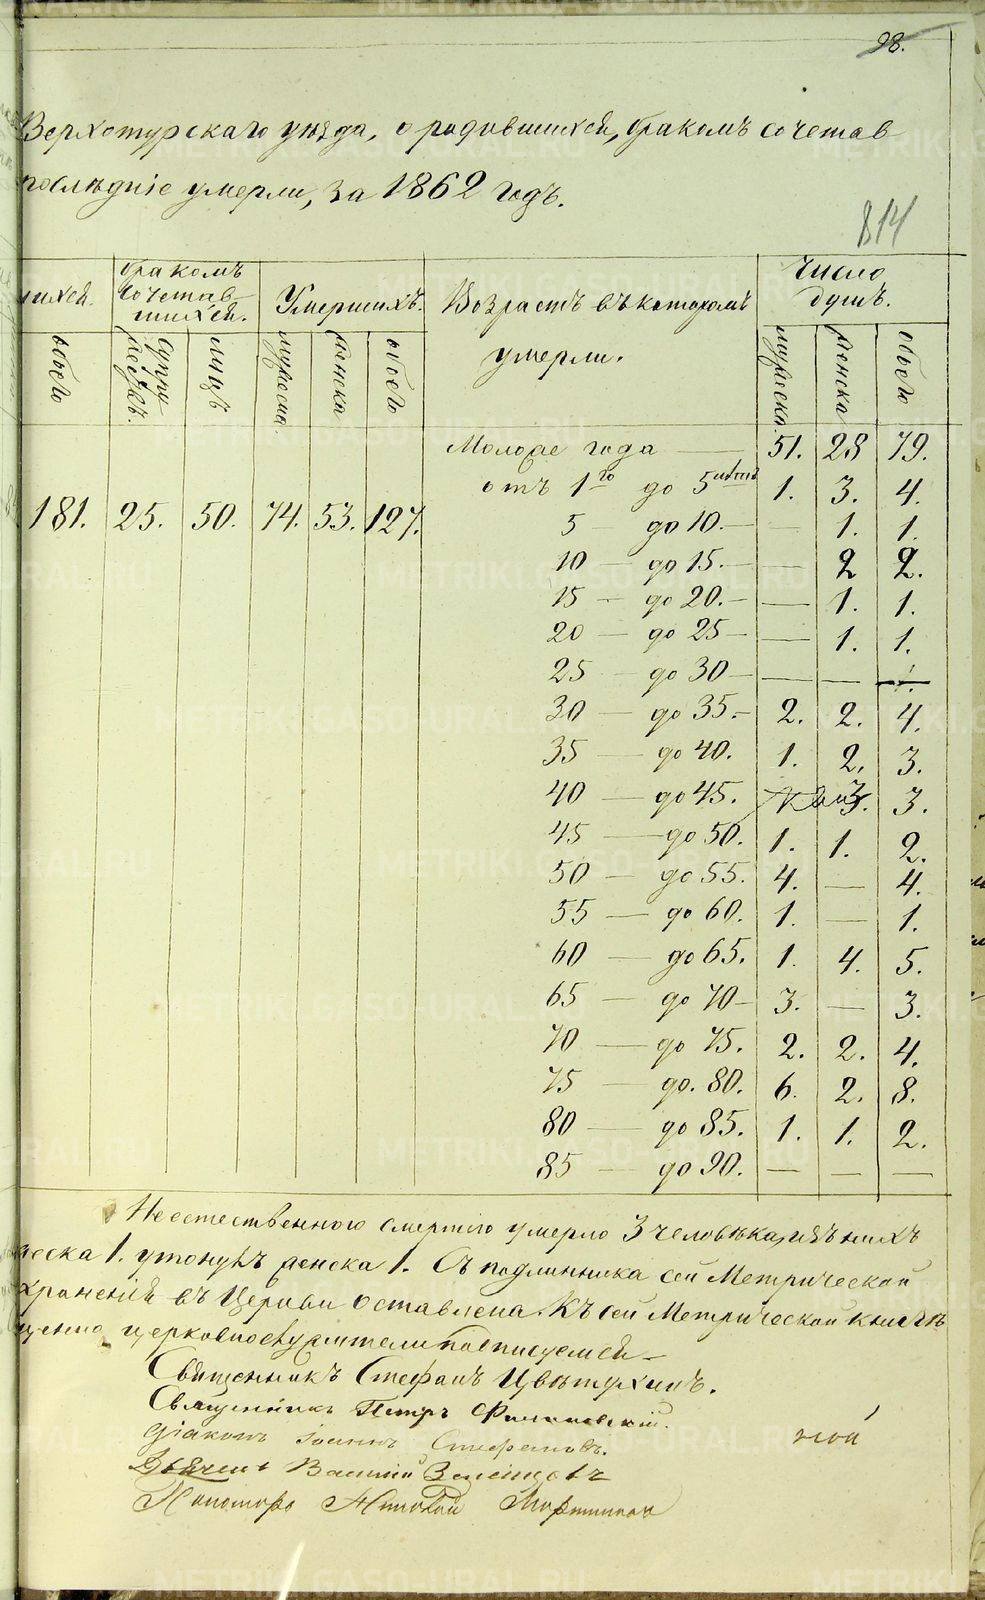 98.
Верхотурскаго уѣзда, о родившихся, бракомъ сочетав
послѣдніе умерли, за 1862 годъ.
814
шихся. бракомъ сочетавшихся. Умершихъ. Возрастъ въ которомъ умерли. Число душъ.
обоего супружествъ. лицъ мужеска. женска обоего мужеска. женска обоего
Моложе года — 51. 28 79.
отъ 1го до 5 лѣтъ 1. 3. 4.
181. 25. 50. 74. 53. 127.
5 до 10. — — 1. 1.
10 — до 15. — — 2 2.
15 — до 20. — — 1. 1.
20 — до 25 — — 1. 1.
25 — до 30 — — —
30 — до 35. — 2. 2. 4.
35 — до 40. 1. 2. 3.
40 — до 45. 3. 3.
45 — до 50. 1. 1. 2.
50 — до 55. 4. — 4.
55 — до 60. 1. — 1.
60 — до 65. 1. 4. 5.
65 — до 70 — 3. — 3.
70 — до 75. 2. 2. 4.
75 — до. 80. 6. 2. 8.
80 — до 85. 1. 1. 2.
85 — до 90. — — —
Неестественного смертію умерло 3 человѣка, изъ нихъ
жеска 1. утонувъ женска 1. Съ подлинника сей Метрической
хранений въ Церкви оставлена. Къ сей Метрической книгѣ
церковнослужители подписуемся —
Священникъ Стефанъ Цвѣтухинъ.
Священникъ Петръ
Діаконъ Іоаннъ Стефановъ.
ной
Василій
Пономарь